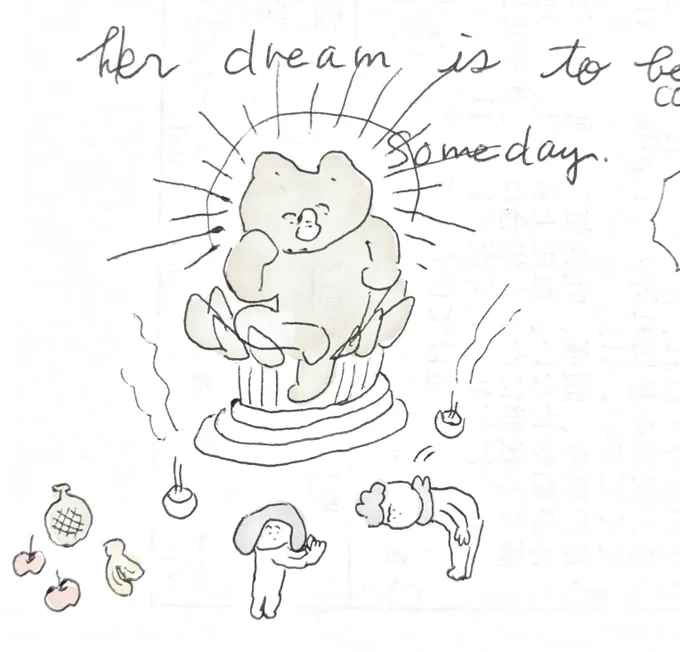 Her dream is to be
someday.